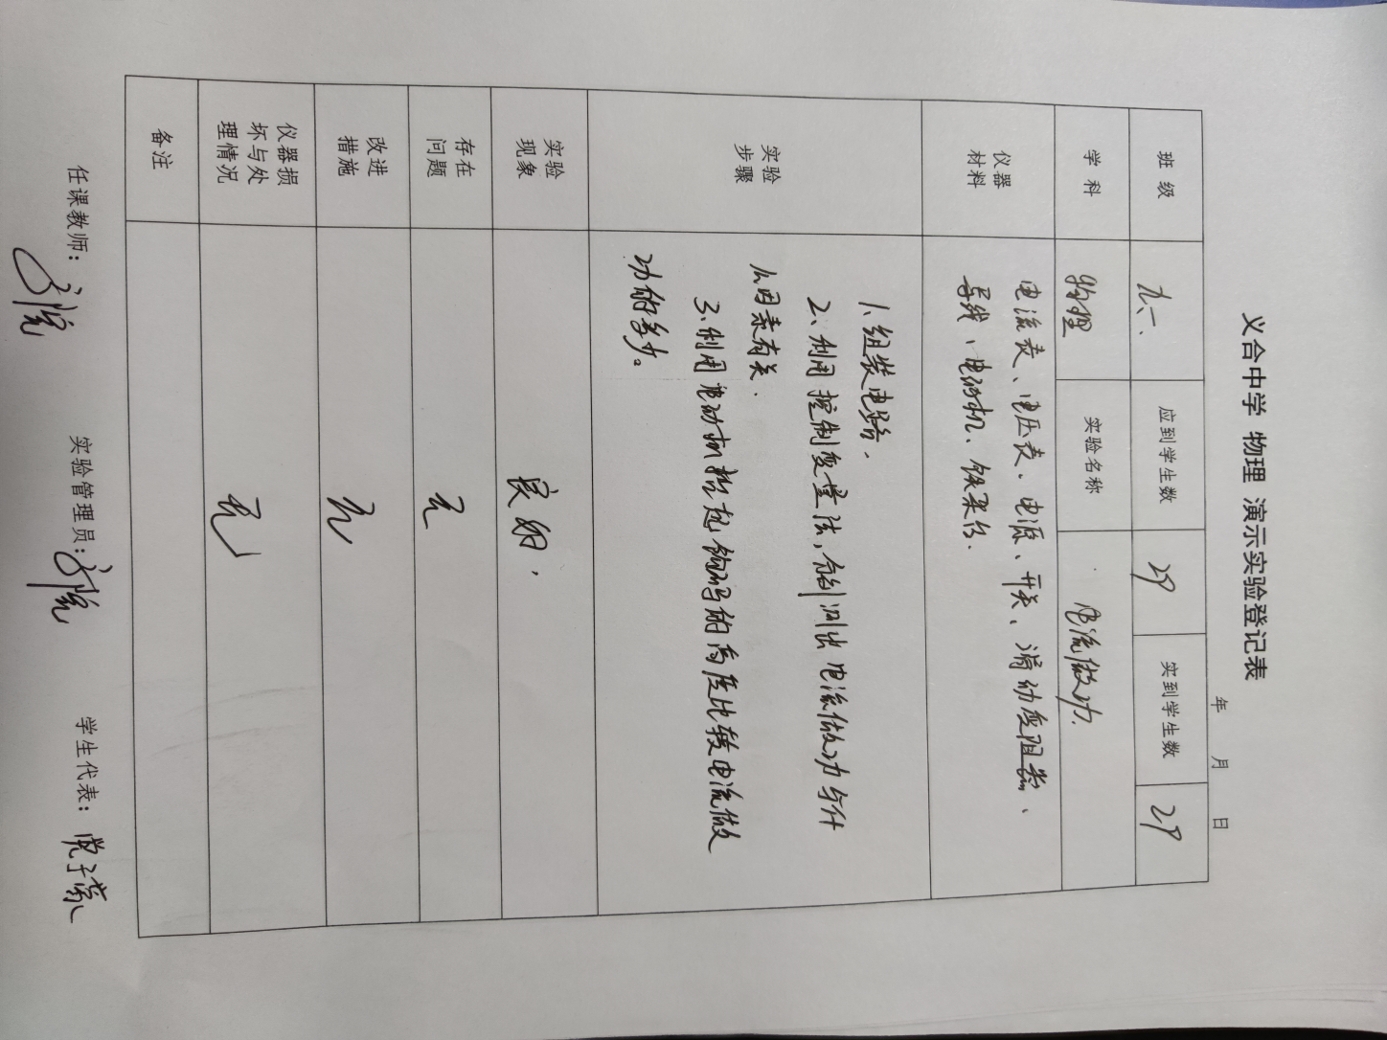 义合中学 物理 演示实验登记表
年 月 日
班 级 九、一、 应到学生数 29 实到学生数 29
学 科 物理 实验名称 电流做功.
仪器
材料
电流表、电压表、电源、开关、滑动变阻器、
导线、电动机、铁架台.
实验
步骤
1、组装电路.
2、利用控制变量法,分别测出电流做功与什
么因素有关.
3、利用电动机提起钩码的高度比较电流做
功的多少。
实验
现象
良好.
存在
问题
无
改进
措施
无
仪器损
坏与处
理情况
无
备注
任课教师:
实验管理员:
学生代表: